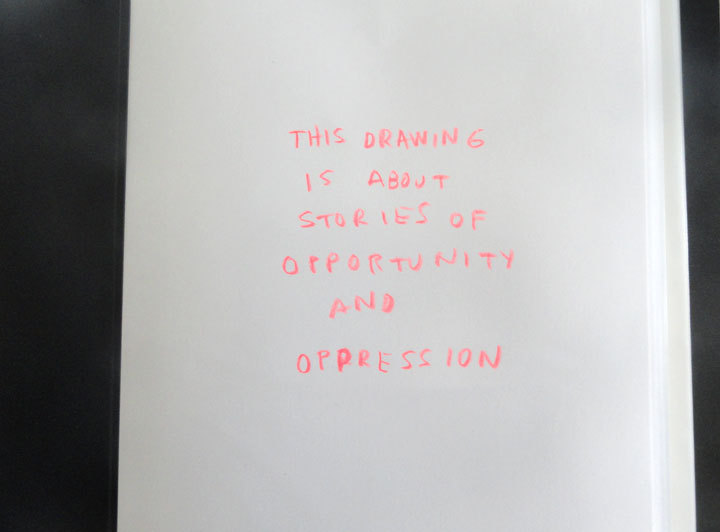 THIS DRAWING
IS ABOUT
STORIES OF
OPPORTUNITY
AND
OPPRESSION